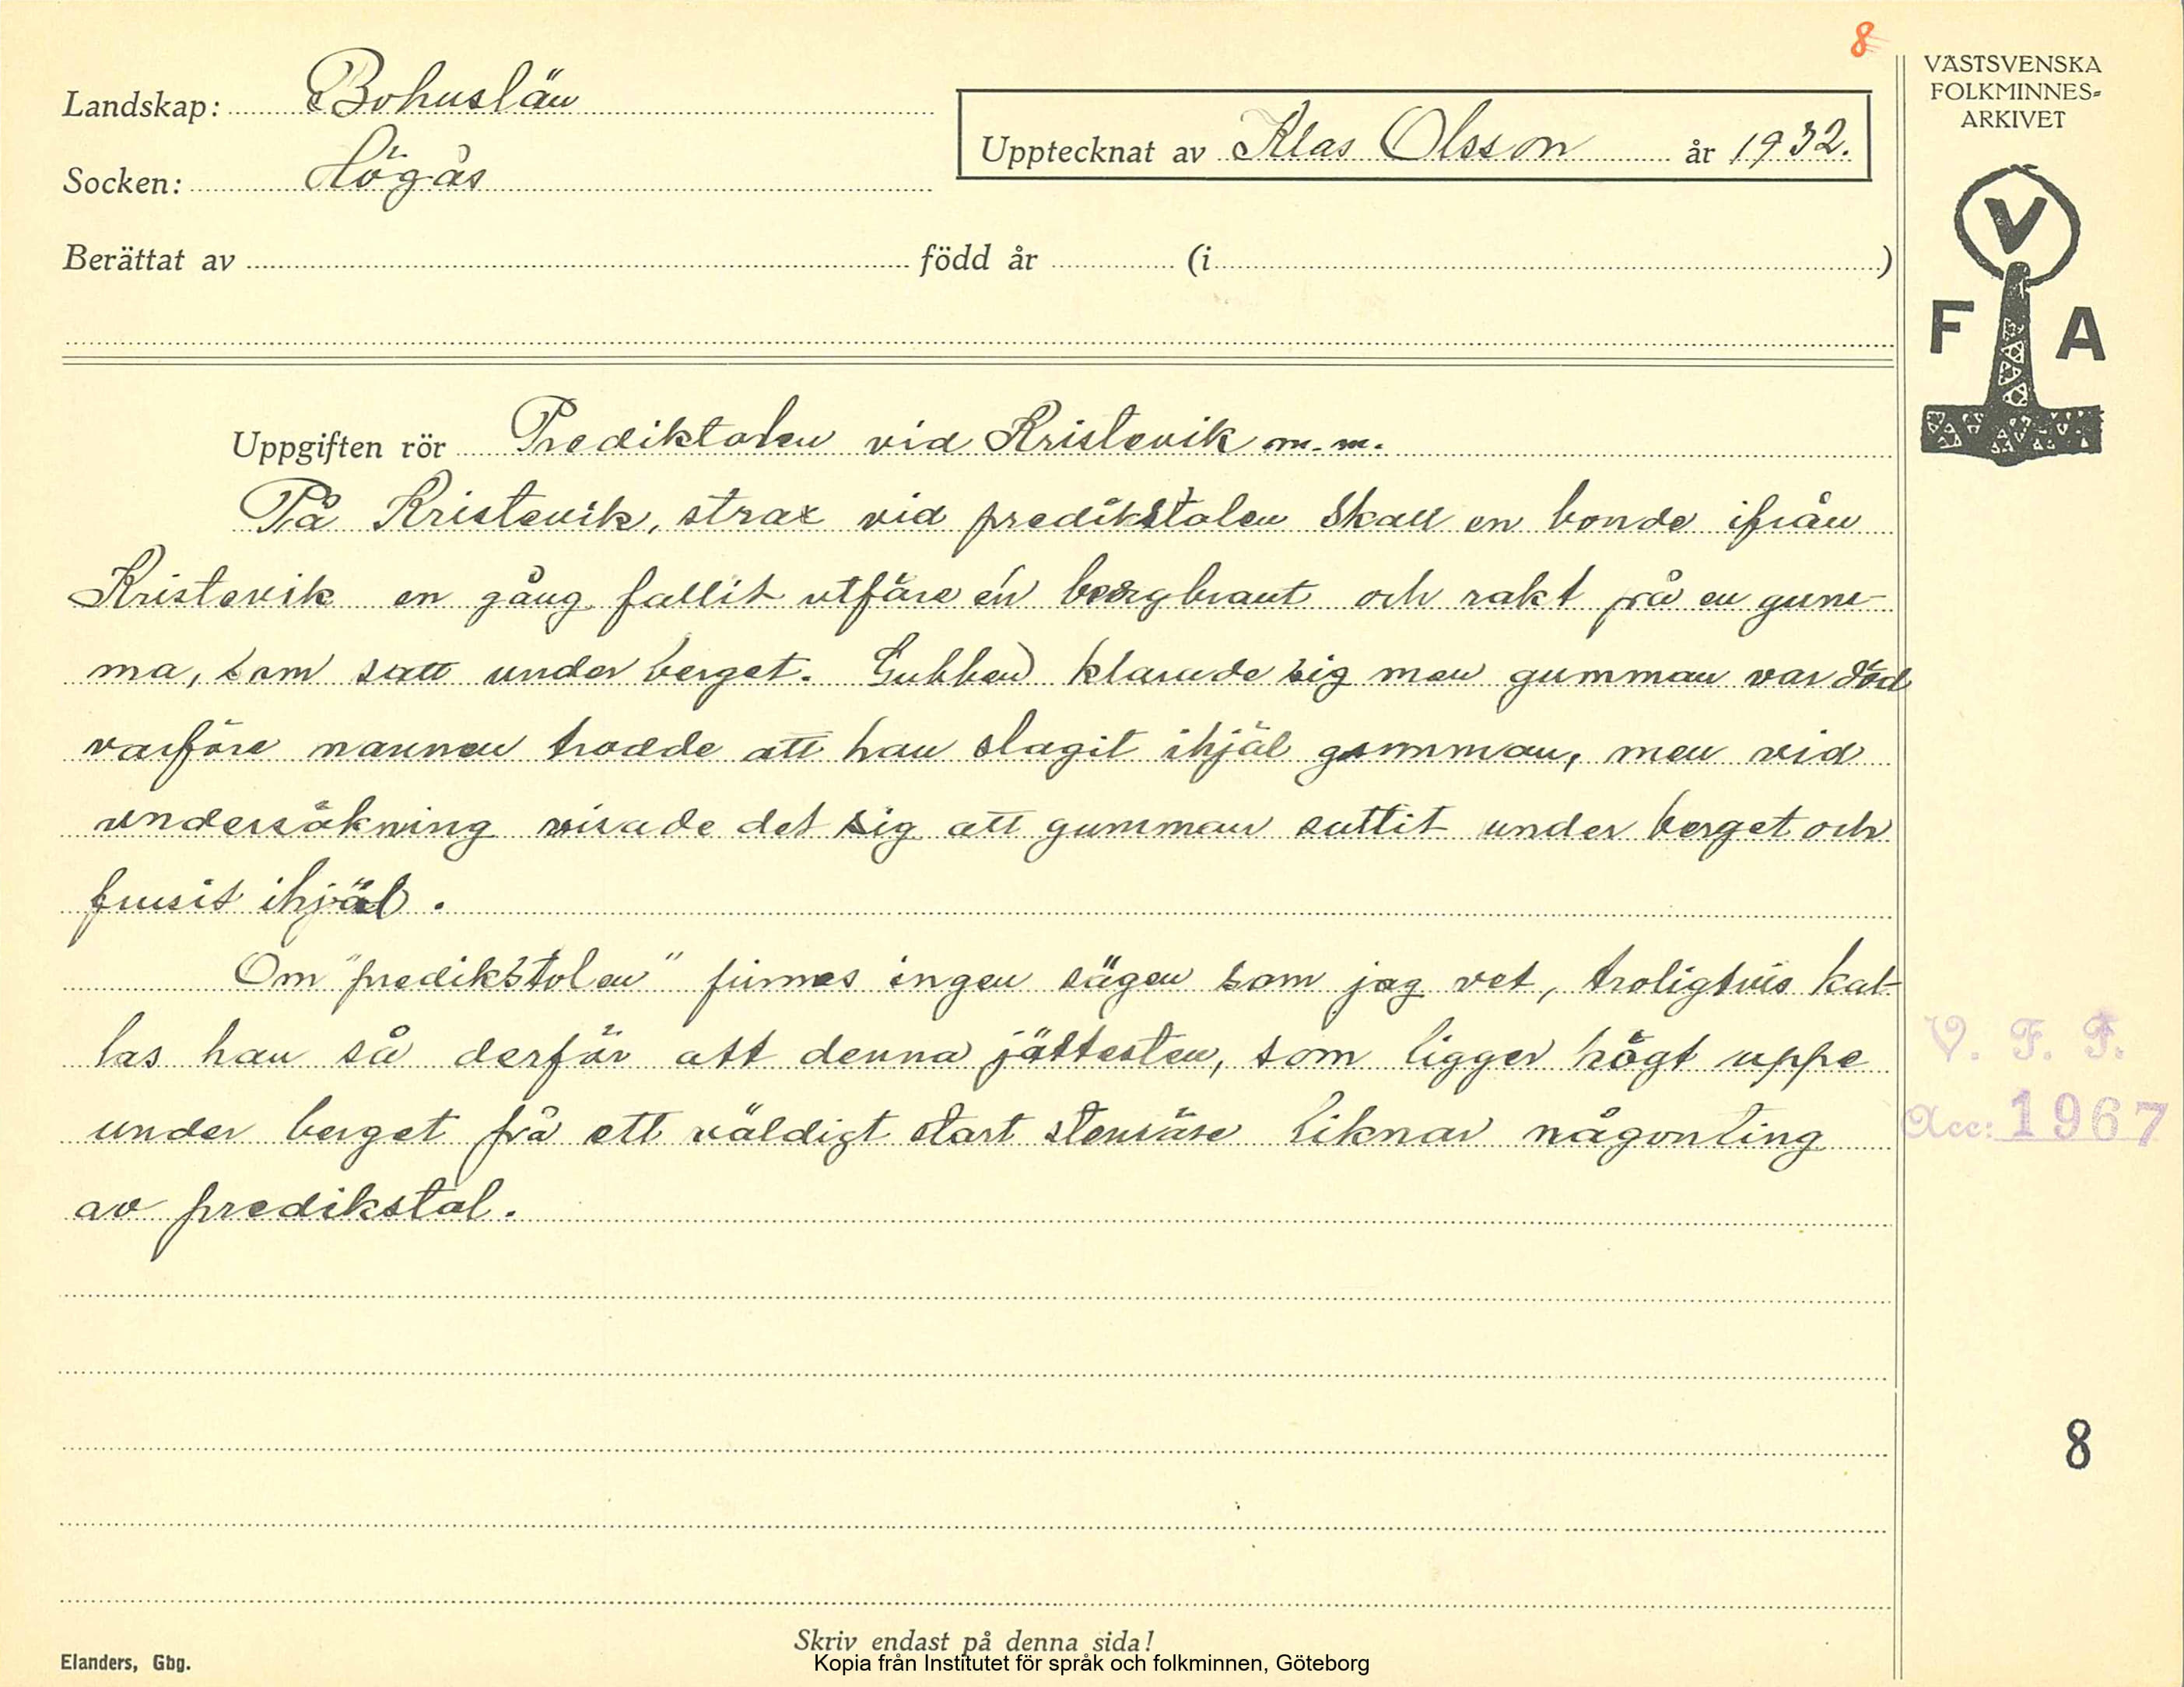 8
VÄSTSVENSKA
FOLKMINNES-
ARKIVET
Landskap: Bohuslän
Upptecknat av Klas Olsson år 1932.
Socken: Högås
V
F A
Berättat av född år (i )
Uppgiften rör Prediktolen vid Kristevik m.m.
På Kristevik, strax vid predikstolen skall en bonde ifrån
Kristevik en gång fallit utföre en bergbrant och rakt på en gum-
ma, som satt under berget. Gubben klarade sig men gumman var död
varföre mannen trodde att han slagit ihjäl gumman, men vid
undersökning visade det sig att gumman suttit under berget och
frusit ihjäl.
Om "predikstolen" finnes ingen sägen som jag vet, troligtvis kal-
las han så derför att denna jättesten, som ligger högt uppe
under berget på ett väldigt stort stenröse liknar någonting
av predikstol.
V. F. F.
Acc: 1967
8
Skriv endast på denna sida!
Elanders, Gbg.
Kopia från Institutet för språk och folkminnen, Göteborg